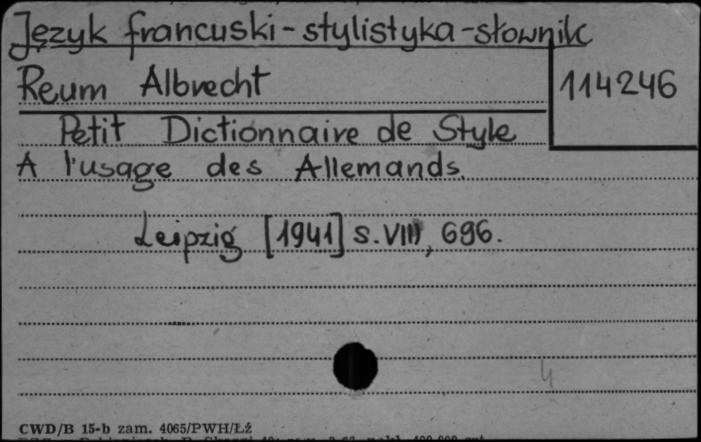 Język francuski - stylistyka - słownik
Reum Albrecht
114246
Petit Dictionnaire de Style
A l'usage des Allemands.
Leipzig [1941] s. VIII, 696.
4
CWD/B 15-b zam. 4065/PWH/Łź